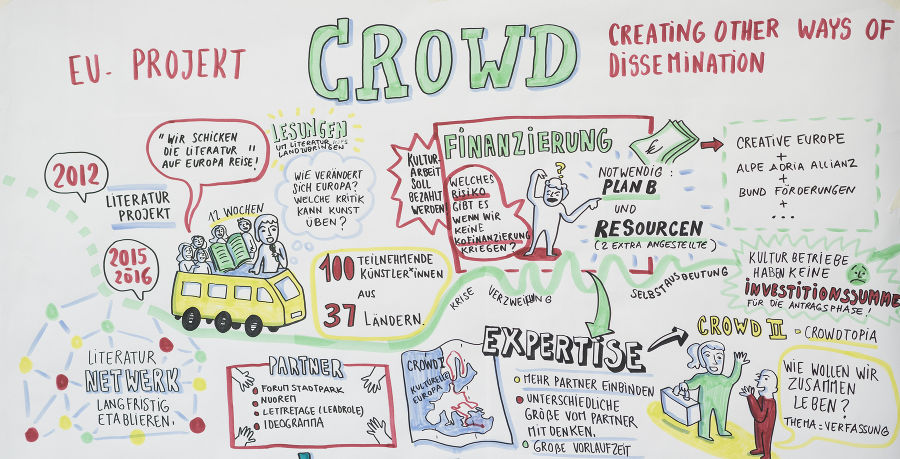 EU- PROJEKT
CROWD
CREATING OTHER WAYS OF
DISSEMINATION
2012
LITERATUR
PROJEKT
2015
2016
"WIR SCHICKEN
DIE LITERATUR
AUF EUROPA REISE!"
12 WOCHEN
LESUNGEN
UM LITERATUR INS
LAND ZU BRINGEN
WIE VERÄNDERT
SICH EUROPA?
WELCHE KRITIK
KANN KUNST
ÜBEN?
100 TEILNEHMENDE
KÜNSTLER*INNEN
AUS
37 LÄNDERN.
KULTUR-
ARBEIT
SOLL
BEZAHLT
WERDEN
FINANZIERUNG
WELCHES
RISIKO
GIBT ES
WENN WIR
KEINE
KOFINANZIERUNG
KRIEGEN?
?
NOTWENDIG:
PLAN B
UND
RESOURCEN
(2 EXTRA ANGESTELLTE)
€
CREATIVE EUROPE
+
ALPE ADRIA ALLIANZ
+
BUND FÖRDERUNGEN
+
...
KRISE VERZWEIFLUNG
SELBSTAUSBEUTUNG
KULTUR BETRIEBE
HABEN KEINE
INVESTITIONSSUMME
FÜR DIE ANTRAGSPHASE!
LITERATUR
NETWERK
LANGFRISTIG
ETABLIEREN.
PARTNER
FORUM STADTPARK
NUOREN
LETTRETAGE (LEADROLE)
IDEOGRAMMA
CROWD I
KULTURELLES
EUROPA
EXPERTISE
MEHR PARTNER EINBINDEN
UNTERSCHIEDLICHE
GRÖßE VOM PARTNER
MIT DENKEN.
GROßE VORLAUFZEIT
CROWD II - CROWDTOPIA
WIE WOLLEN WIR
ZUSAMMEN
LEBEN?
THEMA: VERFASSUNG